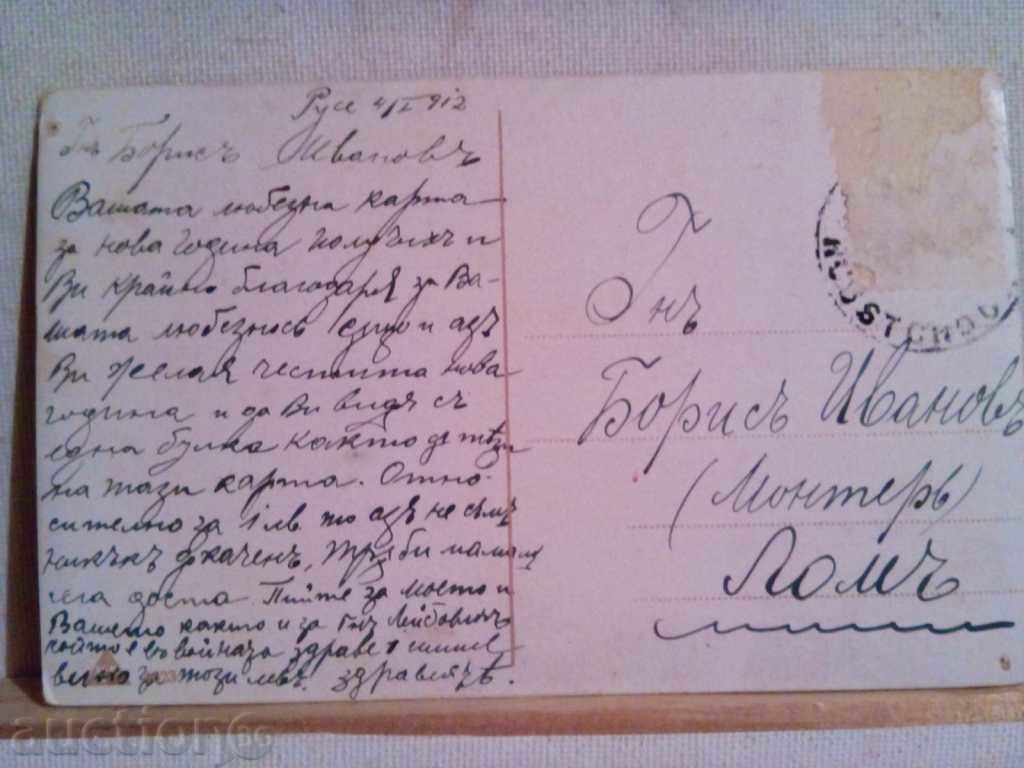 Русе 4/I 912
Гнъ Борисъ Ивановъ
Вашата любезна карта
за нова година получихъ и
Ви крайно благодаря за Ва-
шата любезность също и азъ
Ви желая честита нова
година и да Ви видя съ
една булка както
на тази карта. Отно-
сително за 1 лв. то азъ не съмъ
доста. Пийте за моето и
Вашето както и за
който е въ война за здраве 1 шише
вино за този левъ. здравейте.
Гнъ
Борисъ Ивановъ
(Монтеръ)
Ломъ
ROUSTCHOUC
auction.bg